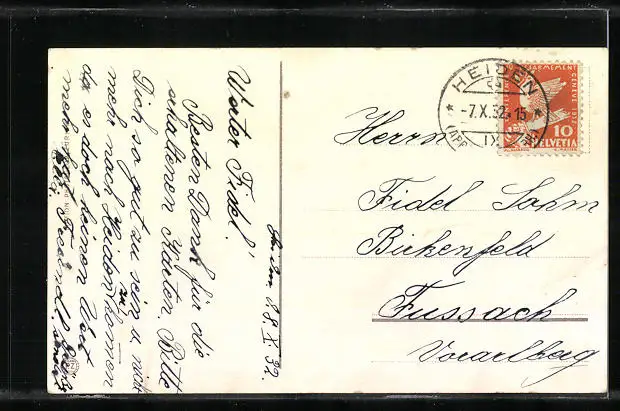 Werter Fidel!
Besten Dank für die
erhaltenen Karten. Bitte
Dich so gut zu sein u. nicht
mehr nach Heiden zu komen
da es doch keinen Wert
mehr hat.
HEIDEN
-7.X.32.-15
(APP.
10
HELVETIA
Herrn
Fidel Sohm
Birkenfeld
Fussach
Vorarlberg